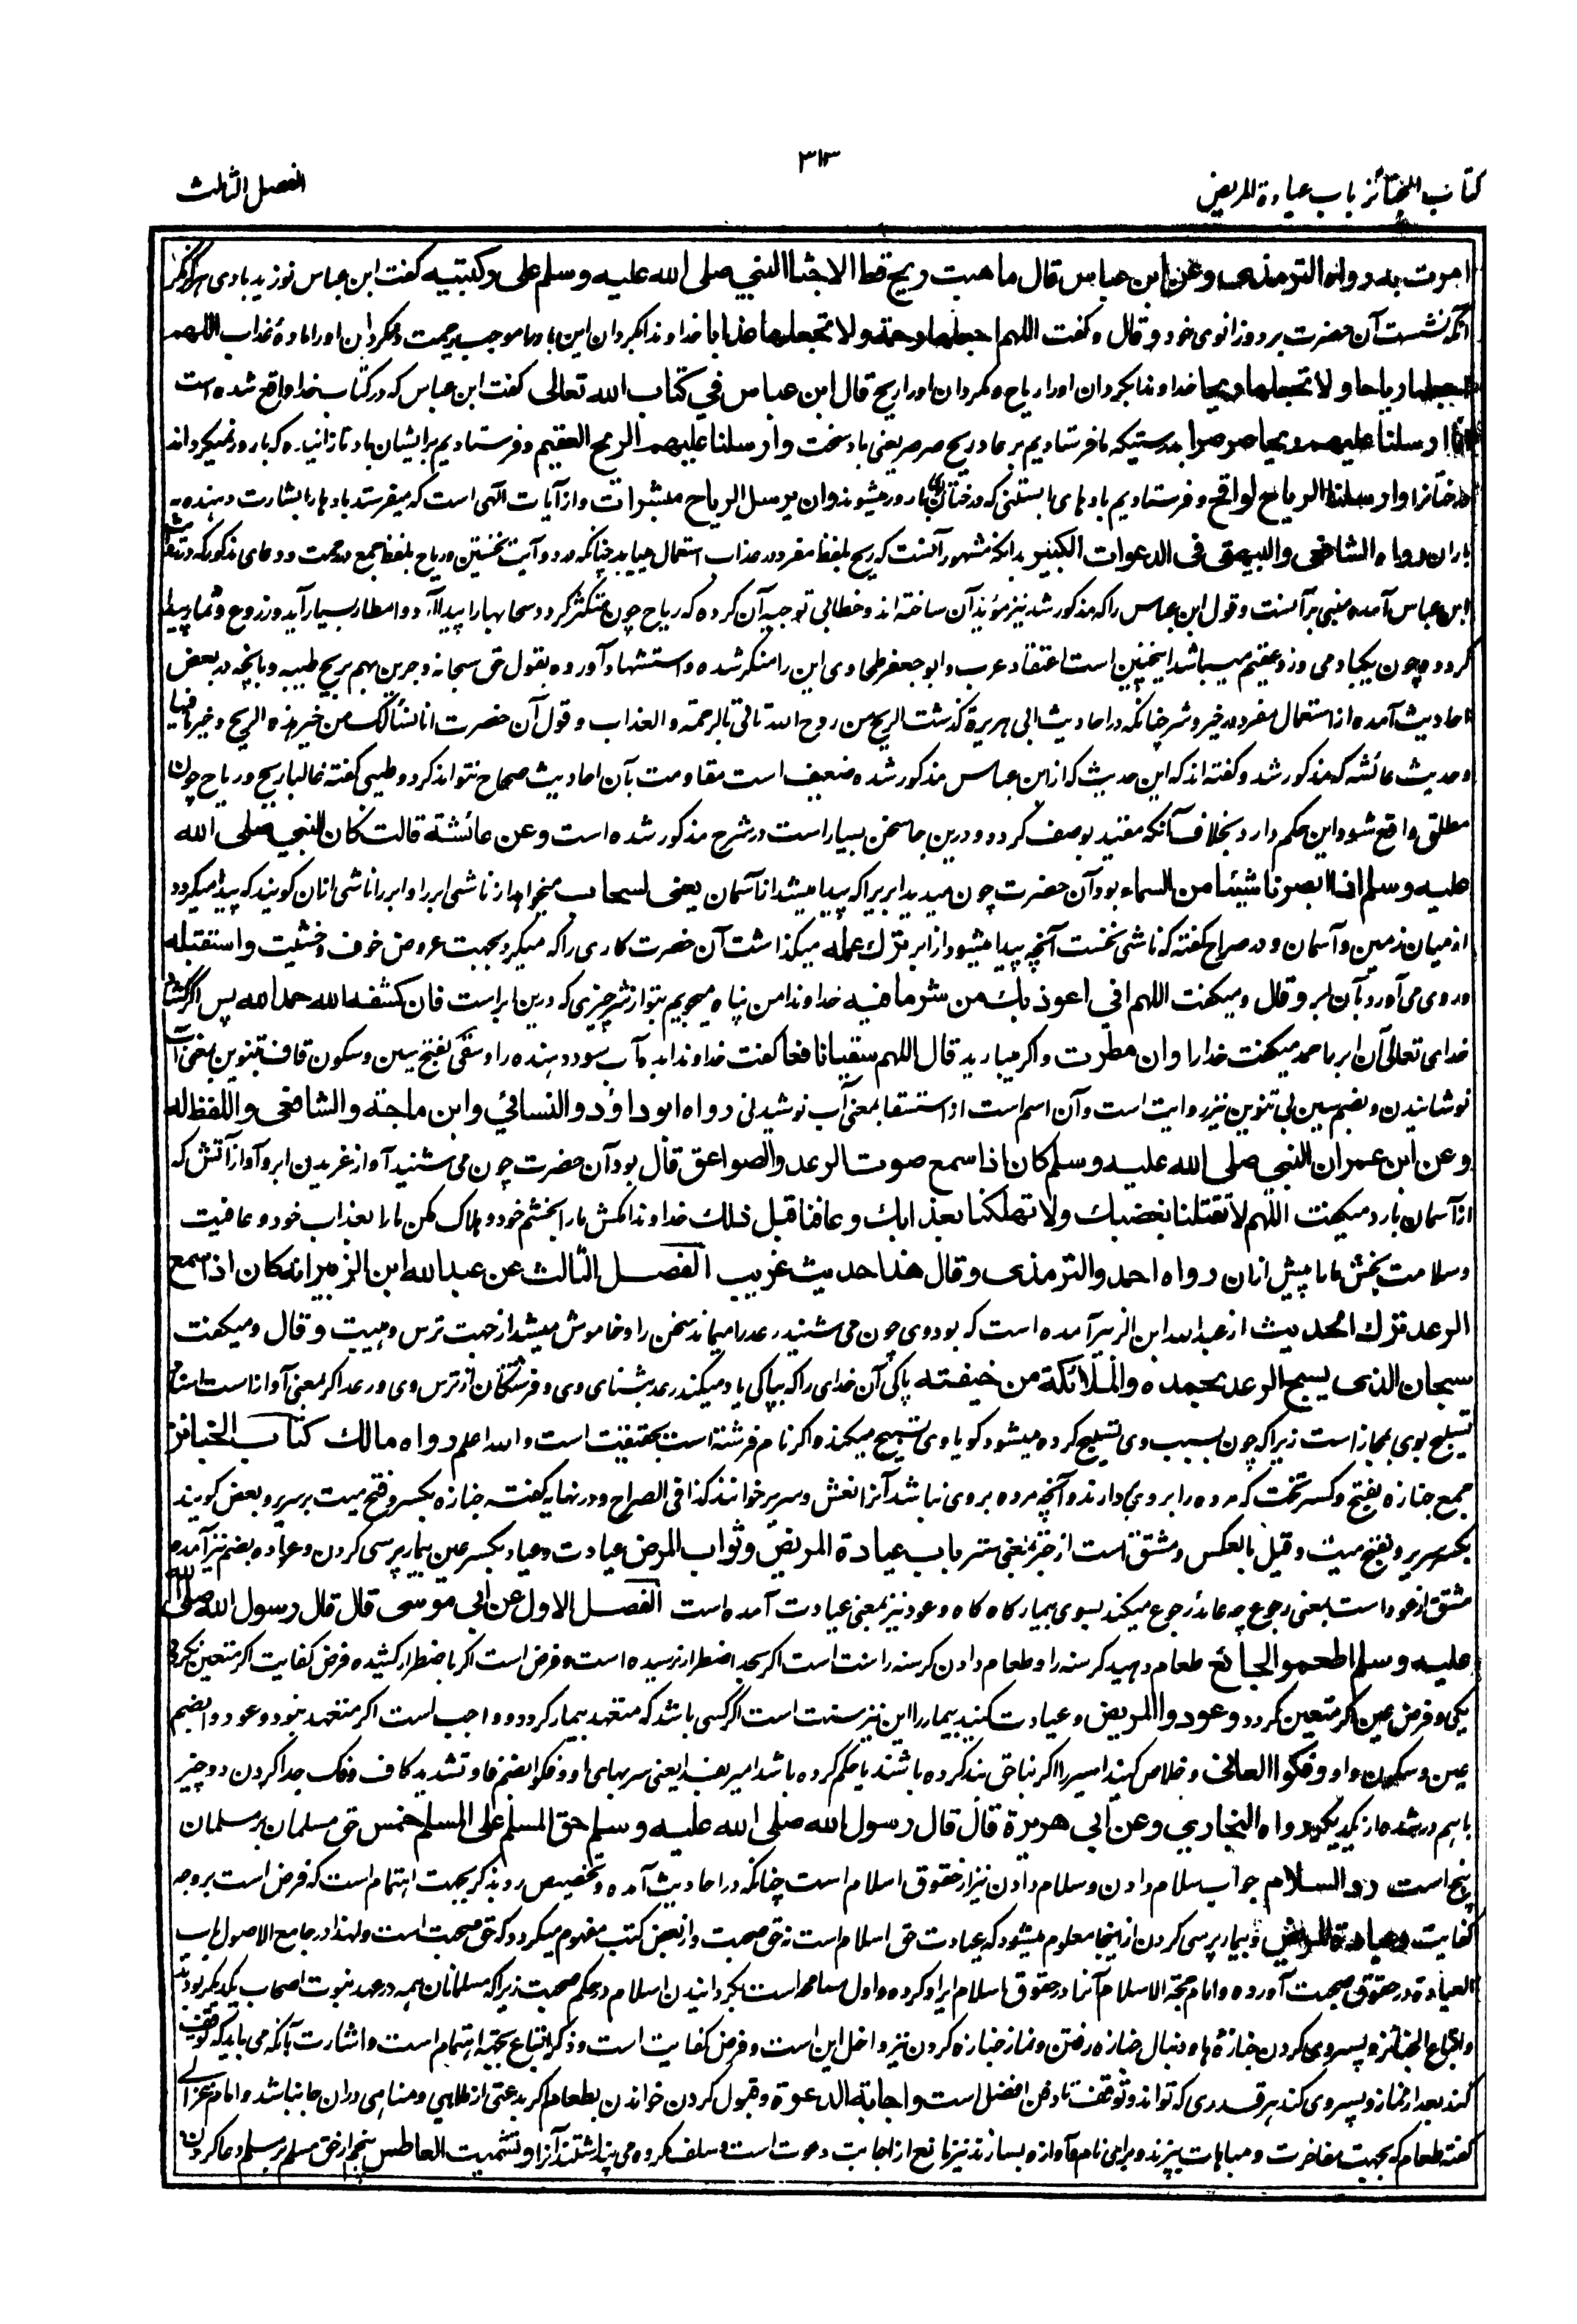 ۳۱۳
کتاب الجنائز باب عیادة المریض
الفصل الثالث
امرت به رواه الترمذی وعن ابن عباس قال ما هبت ریح قط الا جثا النبی صلی الله علیه وسلم علی رکبتیه گفت ابن عباس نوزید بادی هرگز مگر
آنکه نشست آن حضرت بر دو زانوی خود وقال وگفت اللهم اجعلها رحمة ولا تجعلها عذابا خداوندا بگردان این باد را موجب رحمت ومگردان او را ماده عذاب اللهم
اجعلها ریاحا ولا تجعلها ریحا خداوندا بگردان او را ریاح ومگردان او را ریح قال ابن عباس فی کتاب الله تعالی گفت ابن عباس که در کتاب خدا واقع شده است
انا ارسلنا علیهم ریحا صرصرا بدرستیکه ما فرستادیم بر عاد ریح صرصر یعنی باد سخت وارسلنا علیهم الریح العقیم وفرستادیم بر ایشان باد نازانیده که بارور نمیگرداند
درختانرا وارسلنا الریاح لواقح وفرستادیم بادهای ابستنی که درختان بارور میشوند وان یرسل الریاح مبشرات واز آیات الهی است که میفرستد بادها را بشارت دهنده به
باران رواه الشافعی والبیهقی فی الدعوات الکبیر بدانکه مشهور آنست که ریح بلفظ مفرد در عذاب استعمال مییابد چنانکه در دو آیت نخستین وریاح بلفظ جمع در رحمت ودعای مذکور که در حدیث
ابن عباس آمده مبنی بر آنست وقول ابن عباس را که مذکور شد نیز مؤید آن ساخته اند وخطابی توجیه آن کرده که ریاح چون متکثر گردد سحابها را پیدا آرد وامطار بسیار آید وزروع وثمار پیدا
گردد وچون یکباد می وزد عقیم میباشد اینچنین است اعتقاد عرب وابو جعفر طحاوی این را منکر شده واستشهاد آورده بقول حق سبحانه وجرین بهم بریح طیبه وبانچه در بعض
احادیث آمده از استعمال مفرد در خیر وشر چنانکه در احادیث ابی هریرة گذشت الریح من روح الله تاتی بالرحمة والعذاب وقول آن حضرت انا نسألک من خیر هذه الریح وخیر ما فیها
وحدیث عائشه که مذکور شد وگفته اند که این حدیث که از ابن عباس مذکور شده ضعیف است مقاومت بآن احادیث صحاح نتواند کرد وطیبی گفته غالبا ریح وریاح چون
مطلق واقع شود این حکم دارد بخلاف آنکه مقید بوصف گردد ودرین جا سخن بسیار است در شرح مذکور شده است وعن عائشة قالت کان النبی صلی الله
علیه وسلم اذا ابصرنا شیئا من السماء بود آن حضرت چون میدید ابر را که پیدا میشد از آسمان یعنی لسحاب میخواهد از ناشی ابر را وابر را ناشی ازان گویند که پیدا میگردد
از میان زمین وآسمان ودر صراح گفته که ناشی نخست آنچه پیدا میشود از ابر ترک عمله میگذاشت آن حضرت کاری را که میکرد بجهت عروض خوف وخشیت واستقبله
وروی می آورد بآن ابر وقال ومیگفت اللهم انی اعوذ بک من شر ما فیه خداوندا من پناه میجویم بتو از شر چیزی که درین ابر است فان کشفه الله حمد الله پس اگر گشاد
خدای تعالی آن ابر را حمد میگفت خدا را وان مطرت واگر میبارید قال اللهم سقیا نافعا گفت خداوندا بده آب سود دهنده را وسقی بفتح سین وسکون قاف بتنوین بمعنی آب
نوشانیدن وبضم سین بی تنوین نیز روایت است وآن اسم است از استسقا بمعنی آب نوشیدنی رواه ابو داؤد والنسائی وابن ماجة والشافعی واللفظ له
وعن ابن عمر ان النبی صلی الله علیه وسلم کان اذا سمع صوت الرعد والصواعق قال بود آن حضرت چون می شنید آواز غریدن ابر وآواز آتش که
از آسمان بارد میگفت اللهم لا تقتلنا بغضبک ولا تهلکنا بعذابک وعافنا قبل ذلک خداوندا مکش ما را بخشم خود وهلاک مکن ما را بعذاب خود وعافیت
وسلامت بخش ما را پیش ازان رواه احمد والترمذی وقال هذا حدیث غریب الفصل الثالث عن عبد الله ابن الزبیر انه کان اذا سمع
الرعد ترک الحدیث از عبدالله ابن الزبیر آمده است که بود وی چون می شنید رعد را میماند سخن را وخاموش میشد از جهت ترس وهیبت وقال ومیگفت
سبحان الذی یسبح الرعد بحمده والملائکة من خیفته پاکی آن خدای را که بپاکی یاد میکند رعد بثنای وی وفرشتگان از ترس وی ورعد اگر بمعنی آواز است اسناد
تسبیح بوی بمجاز است زیرا که چون بسبب وی تسبیح کرده میشود گویا وی تسبیح میکند واگر نام فرشته است بحقیقت است والله اعلم رواه مالک کتاب الجنائز
جمع جنازه بفتح وکسر تخت که مرده را بر وی دارند وآنچه مرده بر وی نباشد آنرا نعش وسریر خوانند کذا فی الصراح ودر نهایه گفته جنازه بکسر وفتح میت بر سریر وبعض گویند
بکسر سریر وبفتح میت وقیل بالعکس ومشتق است از جنز بمعنی ستر باب عیادة المریض وثواب المرض عیادت وعیاد بکسر عین بیمار پرسی کردن وعواده بضم نیز آمده
مشتق از عود است بمعنی رجوع چه عائد رجوع میکند بسوی بیمار گاه گاه وعود نیز بمعنی عیادت آمده است الفصل الاول عن ابی موسی قال قال رسول الله صلی الله
علیه وسلم اطعموا الجائع طعام دهید گرسنه را وطعام دادن گرسنه را سنت است اگر بحد اضطرار نرسیده است وفرض است اگر باضطرار کشیده فرض کفایت اگر متعین نگردد
یکی وفرض عین اگر متعین گردد وعودوا المریض وعیادت کنید بیمار را این نیز سنت است اگر کسی باشد که متعهد بیمار گردد وواجب است اگر متعهد نبود وعودوا بضم
عین وسکون واو وفکوا العانی وخلاص کنید اسیر را اگر بناحق بند کرده باشند یا حکم کرده باشد امیر بفدا یعنی سربهای او وفکوا بضم فا وتشدید کاف وفک جدا کردن دو چیز
باهم در شده از یکدیگر رواه البخاری وعن ابی هریرة قال قال رسول الله صلی الله علیه وسلم حق المسلم علی المسلم خمس حق مسلمان بر مسلمان
پنج است رد السلام جواب سلام دادن وسلام دادن نیز از حقوق اسلام است چنانکه در احادیث آمده وتخصیص رد بذکر بجهت اهتمام است که فرض است بر وجه
کفایت وعیادة المریض وبیمار پرسی کردن از اینجا معلوم میشود که عیادت حق اسلام است نه حق صحبت واز بعض کتب مفهوم میگردد که حق صحبت است ولهذا در جامع الاصول باب
العیادة در حقوق صحبت آورده وامام حجة الاسلام آنرا در حقوق اسلام ایراد کرده واول مسامحه است بگردانیدن اسلام در حکم صحبت زیرا که مسلمانان همه در عهد نبوت اصحاب یکدیگر بودند
واتباع الجنائز وپسروی کردن جنازه ها ودنبال جنازه رفتن ونماز جنازه کردن نیز داخل این است وفرض کفایت است وذکر اتباع بجهة اهتمام است واشارت بآنکه می باید که توقف
کند بعد از نماز وپسروی کند هر قدری که تواند وتوقف تا دفن افضل است واجابة الدعوة وقبول کردن خواندن بطعام اگر بدعتی از ملاهی ومناهی دران جا نباشد وامام غزالی
گفته طعام که بجهت مفاخرت ومباهات بپزند وبرای نام وآوازه بسازند نیز مانع از اجابت دعوت است وسلف مکروه می پنداشتند آنرا وتشمیت العاطس پنجم از حق مسلم بر مسلم دعا کردن